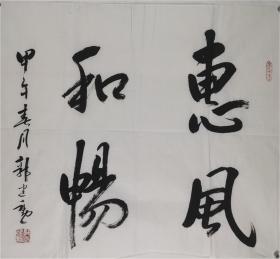 惠风
和暢
甲午春月郭建勳